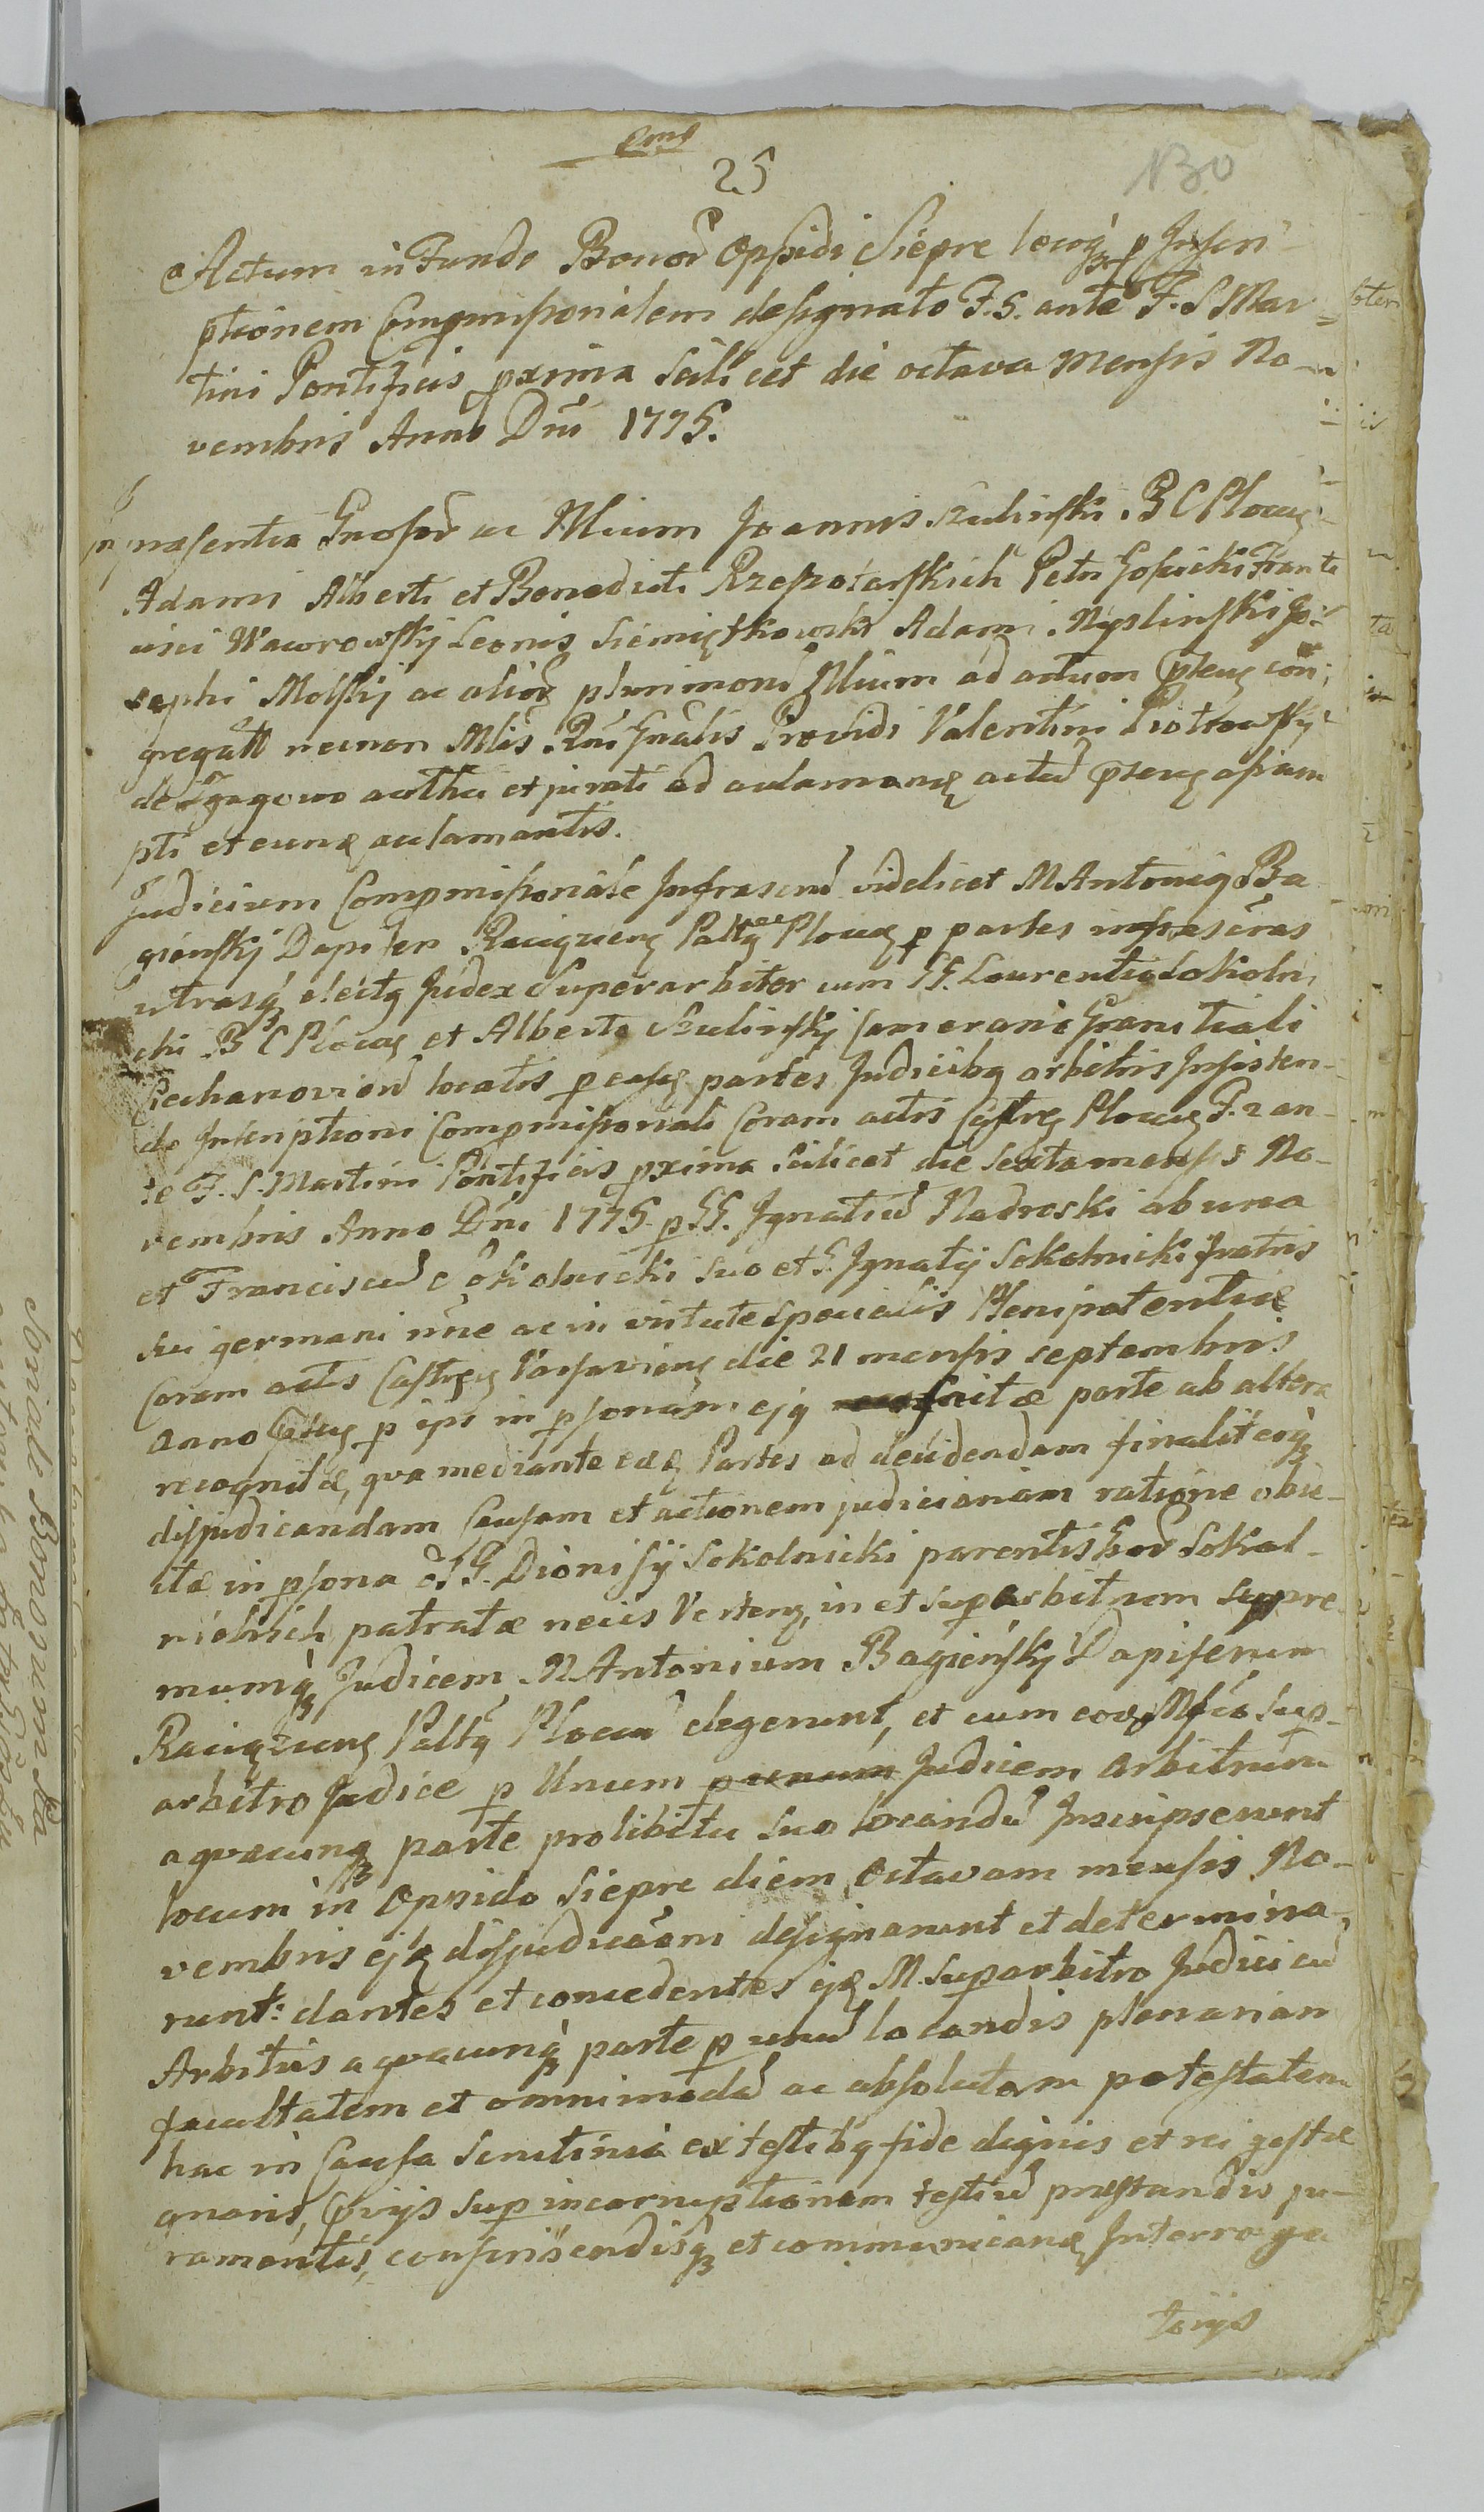 25
Actum in Fundo Bonorũ Oppidi Siepre locoq; p Inscri-
ptionem Compmissorialem designato F. 5. ante F. S Mar-
tini Pontificis pxima Scilicet die octava Mensis No-
vembris Anno Dni 1775.
In præsentia Gnosorũ ac Nlium Joannis Szulinski B C Plocen
Adami Alberti et Benedicti Rzeszotarskich Petri Gosicki Franci
sci Wawrowskij Leonis Siemiątkowski Adami Myslinski Jo-
sephi Molskij ac alior plurimorũ Nlium ad actum Psten con-
gregatt necnon Mlis Rni Gnalis Providi Valentini Piotrowskij
de Zgagowo auth et jurati ad aclamanđ actũ Psens assum
pti et eund aclamantis.
Judicium Compmissoriale Infrascrip videlicet M Antonig Ba
gienskij Dapifer Raciązens Paltg Plocen p partes infrascras
utrasq; electg Judex Superarbiter cum GG. Laurentio Sokolni
cki B C Plocen et Alberto Szulinskij Camerario Granitiali
Ciechanovien locatis p eass partes Judicibg arbitris Insisten-
do Inscriptioni Compmissoriali Coram actis Castren Plocen F. 2 an-
te F. S. Martini Pontificis pxima Scilicet die Sexta mensis No-
vembris Anno Dni 1775 p GG. Ignatiũ Nadroski ab una
et Franciscũ Sokolnicki suo et G. Ignatij Sokolnicki fratris
sui germani nne ac in virtute specialis Plenipotentiæ
Coram actis Castren Varsaviens die 21 mensis septembris
Anno Psen p ips in psonam ejg factæ parte ab altera
recognitæ, qva mediante eæd Partes ad decidendam finalit eoq;
disjudicandam Causam et actionem judiciariam ratione obie-
ctæ in psona OG G. Dionisÿ Sokolnicki parentis horũ Sokol-
nickich patratæ necis Verteng, in et suparbitrum supre
mumq; Judicem M Antonium Bagienskij Dapiferum
Raciązens Paltg Plocen elegerunt, et cum eod Mfco Sup-
arbitro Judice p Unum p unum Judicem Arbitrum
a qvacunq; parte prolibitu suo locandũ Inscripserunt
locum in Oppido Siepre diem Octavam mensis No-
vembris ejd disjudicaõni designarunt et determina-
runt: dantes et concedentes ejd M. Suparbitro Judici cũ
Arbitris a qvacunq; parte p unũ locandis plenariam
facultatem et omnimodã ac absolutam potestatem
hac in Causa Scrutinia ex testibg fide dignis et rei gestæ
gnaris, Pvijs sup incorruptionem testiũ præstandis ju-
ramentis, conscriscendisq; et communicand Interroga
torijs